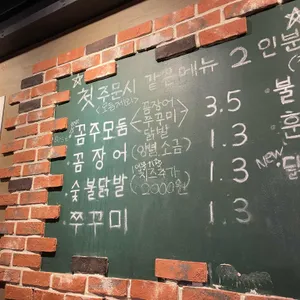 첫주문시 같은메뉴 2인분
꼼장어
쭈꾸미
닭발
꼼주모듬 3.5
꼼장어 (양념,소금) 1.3
숯불닭발 (치즈추가 2000원) 1.3
쭈꾸미 1.3
불
훈
NEW 닭